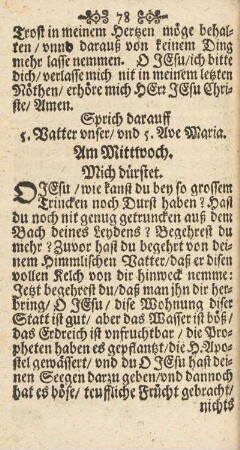 78
Trost in meinem Hertzen möge behal-
ten / vnnd darauß von keinem Ding
mehr lasse nemmen. O JEsu / ich bitte
dich / verlasse mich nit in meinem letzten
Nöthen / erhöre mich HErr JEsu Chri-
ste / Amen.
Sprich darauff
5. Vatter vnser / vnd 5. Ave Maria.
Am Mittwoch.
Mich dürstet.
O JEsu / wie kanst du bey so grossem
Trincken noch Durst haben? Hast
du noch nit genug getruncken auß dem
Bach deines Leydens? Begehrest du
mehr? Zuvor hast du begehrt von dei-
nem Himmlischen Vatter / daß er disen
vollen Kelch von dir hinweck nemme:
Jetzt begehrest du / daß man jhn dir her-
bring / O JEsu / dise Wohnung diser
Statt ist gut / aber das Wasser ist böß /
das Erdreich ist vnfruchtbar / die Pro-
pheten haben es gepflantzt / die H. Apo-
stel gewässert / vnd du O JEsu hast dei-
nen Seegen darzu geben / vnd dannoch
hat es böse / teuffliche Frücht gebracht /
nichts